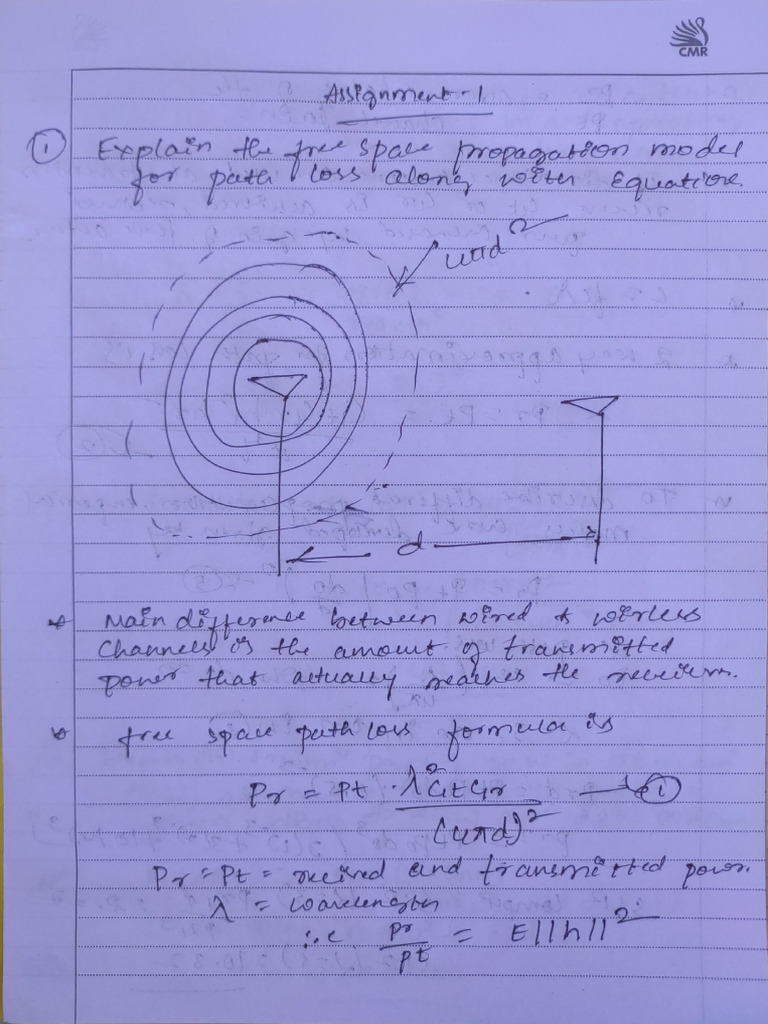 CMR
Assignment-1
① Explain the free space propagation model
for path loss along with Equation.
4πd²
d
* Main difference between wired & wirless
Channels is the amount of transmitted
power that actually reaches the receivers.
* free space path loss formula is
Pr = Pt · λ²GtGr / (4πd)² → ①
Pr = Pt = recived and transmitted power.
λ = wavelength
∴ Pr/Pt = E||h||²